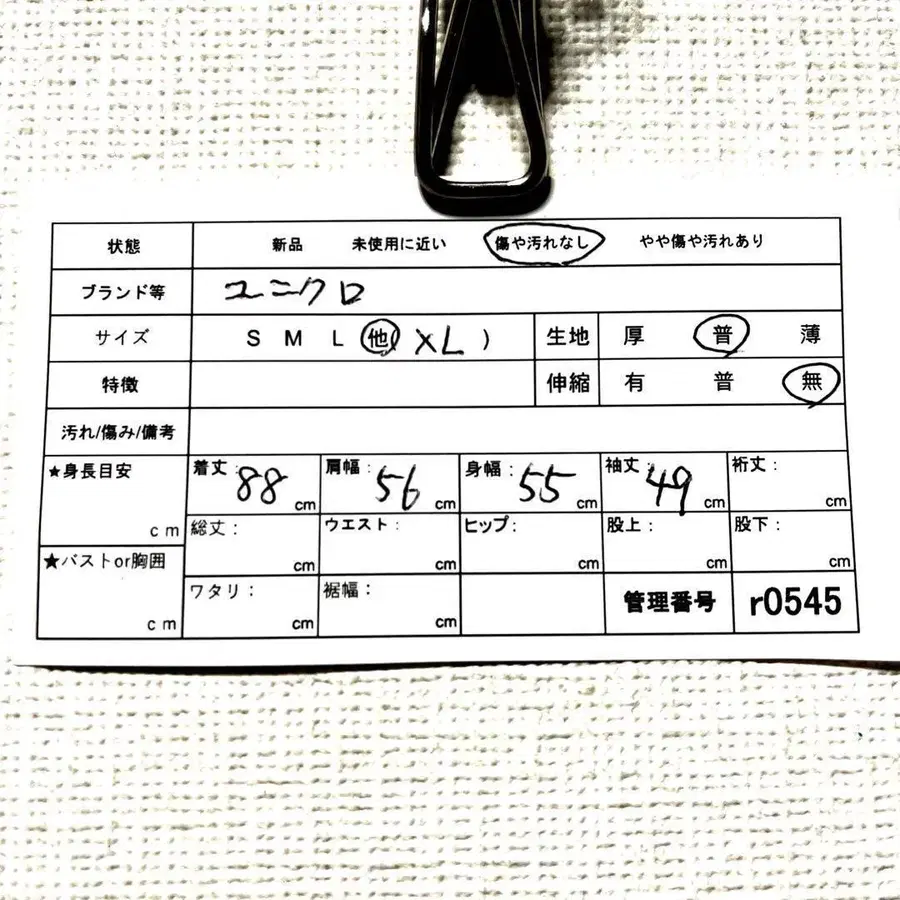 状態 新品 未使用に近い 傷や汚れなし やや傷や汚れあり
ブランド等 ユニクロ
サイズ S M L (他) XL ) 生地 厚 普 薄
特徴 伸縮 有 普 無
汚れ/傷み/備考
★身長目安 cm 着丈: 88 cm 肩幅: 56 cm 身幅: 55 cm 袖丈: 49 cm 裄丈: cm
総丈: cm ウエスト: cm ヒップ: cm 股上: cm 股下: cm
★バストor胸囲 cm ワタリ: cm 裾幅: cm 管理番号 r0545